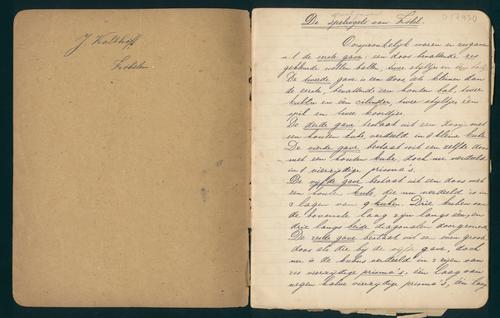 J Kolthoff
De speelgots van Fröbel.
Oorspronkelijk waren er
de eerste gave, een doos bevattende zes
gekleurde wollen ballen, twee stijltjes en
De tweede gave is een doos als kleiner dan
de eerste, bevattende een houten bal, twee
kubben en een cilinder, twee stijltjes een
spil en twee koordjes.
De derde gave bestaat uit een doosje met
een houten kube, verdeeld in 8 kleine kub.
De vierde gave bestaat uit een zelfde doos
met een houten kube, doch nu verdeeld
in 8 vierzijdige prisma's.
De vijfde gave bestaat uit een doos met
een houten kube, die nu verdeeld is in
3 lagen van 9 kuben. Drie kuben van
de bovenste laag zijn langs één, en
drie langs beide diagonalen doorgesneden
De zesde gave bestaat uit een even groote
doos als die bij de vijfde gave, doch
nu is de kubus verdeeld in 2 rijen van
zes vierzijdige prisma's, één laag van
negen halve vierzijdige prisma's, één laag